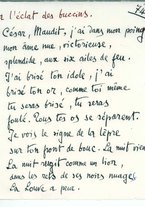 l'éclat des buccins.
César, Maudit, j'ai dans mon poing
mon âme nue, victorieuse,
splendide, aux six ailes de feu.
J'ai brisé ton idole, j'ai
brisé ton or, comme toi même
tu seras brisé, tu seras
foulé. Tous tes os se séparent.
Je vois le signe de la lèpre
sur ton front de bouc. La nuit vient
La nuit rugit comme un lion,
dans les rets de ses noirs nuages
La Louve a peur.